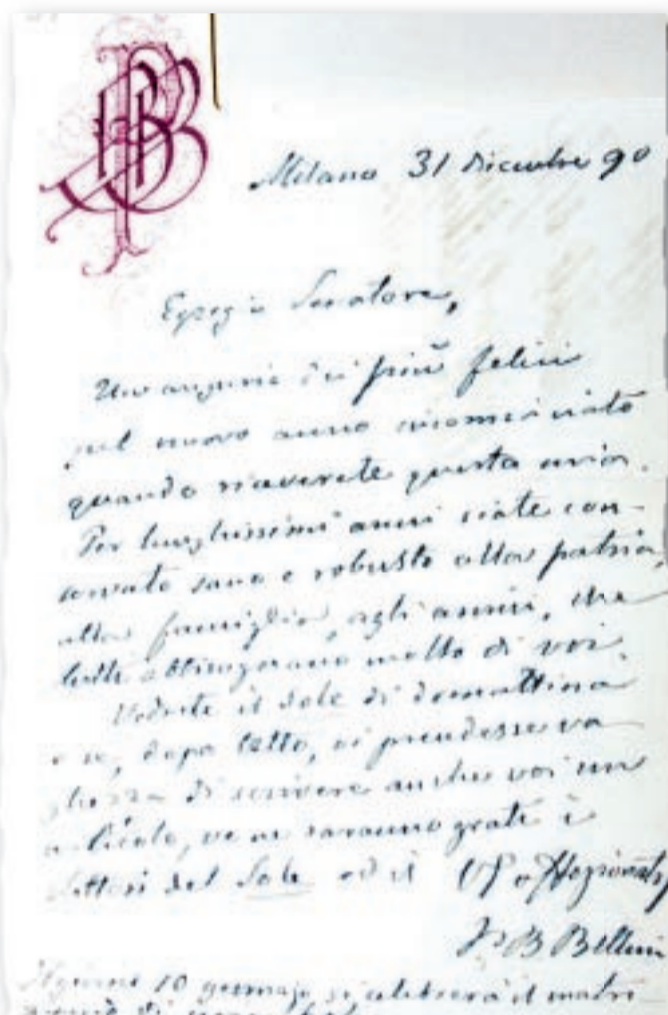 Milano 31 Dicembre 90
Egregio Senatore,
Un augurio dei più felici
pel nuovo anno incominciato
quando riceverete questa mia.
Per lunghissimi anni siate con-
servato sano e robusto alla patria,
alla famiglia, agli amici, che
tutti abbisognano molto di voi.
Vedrete il Sole di domattina
e se, dopo letto, vi prendesse va
ghezza di scrivere anche voi un
articolo, ve ne saranno grati i
lettori del Sole ed il
B Bellini
10 gennaio si celebrerà il matri